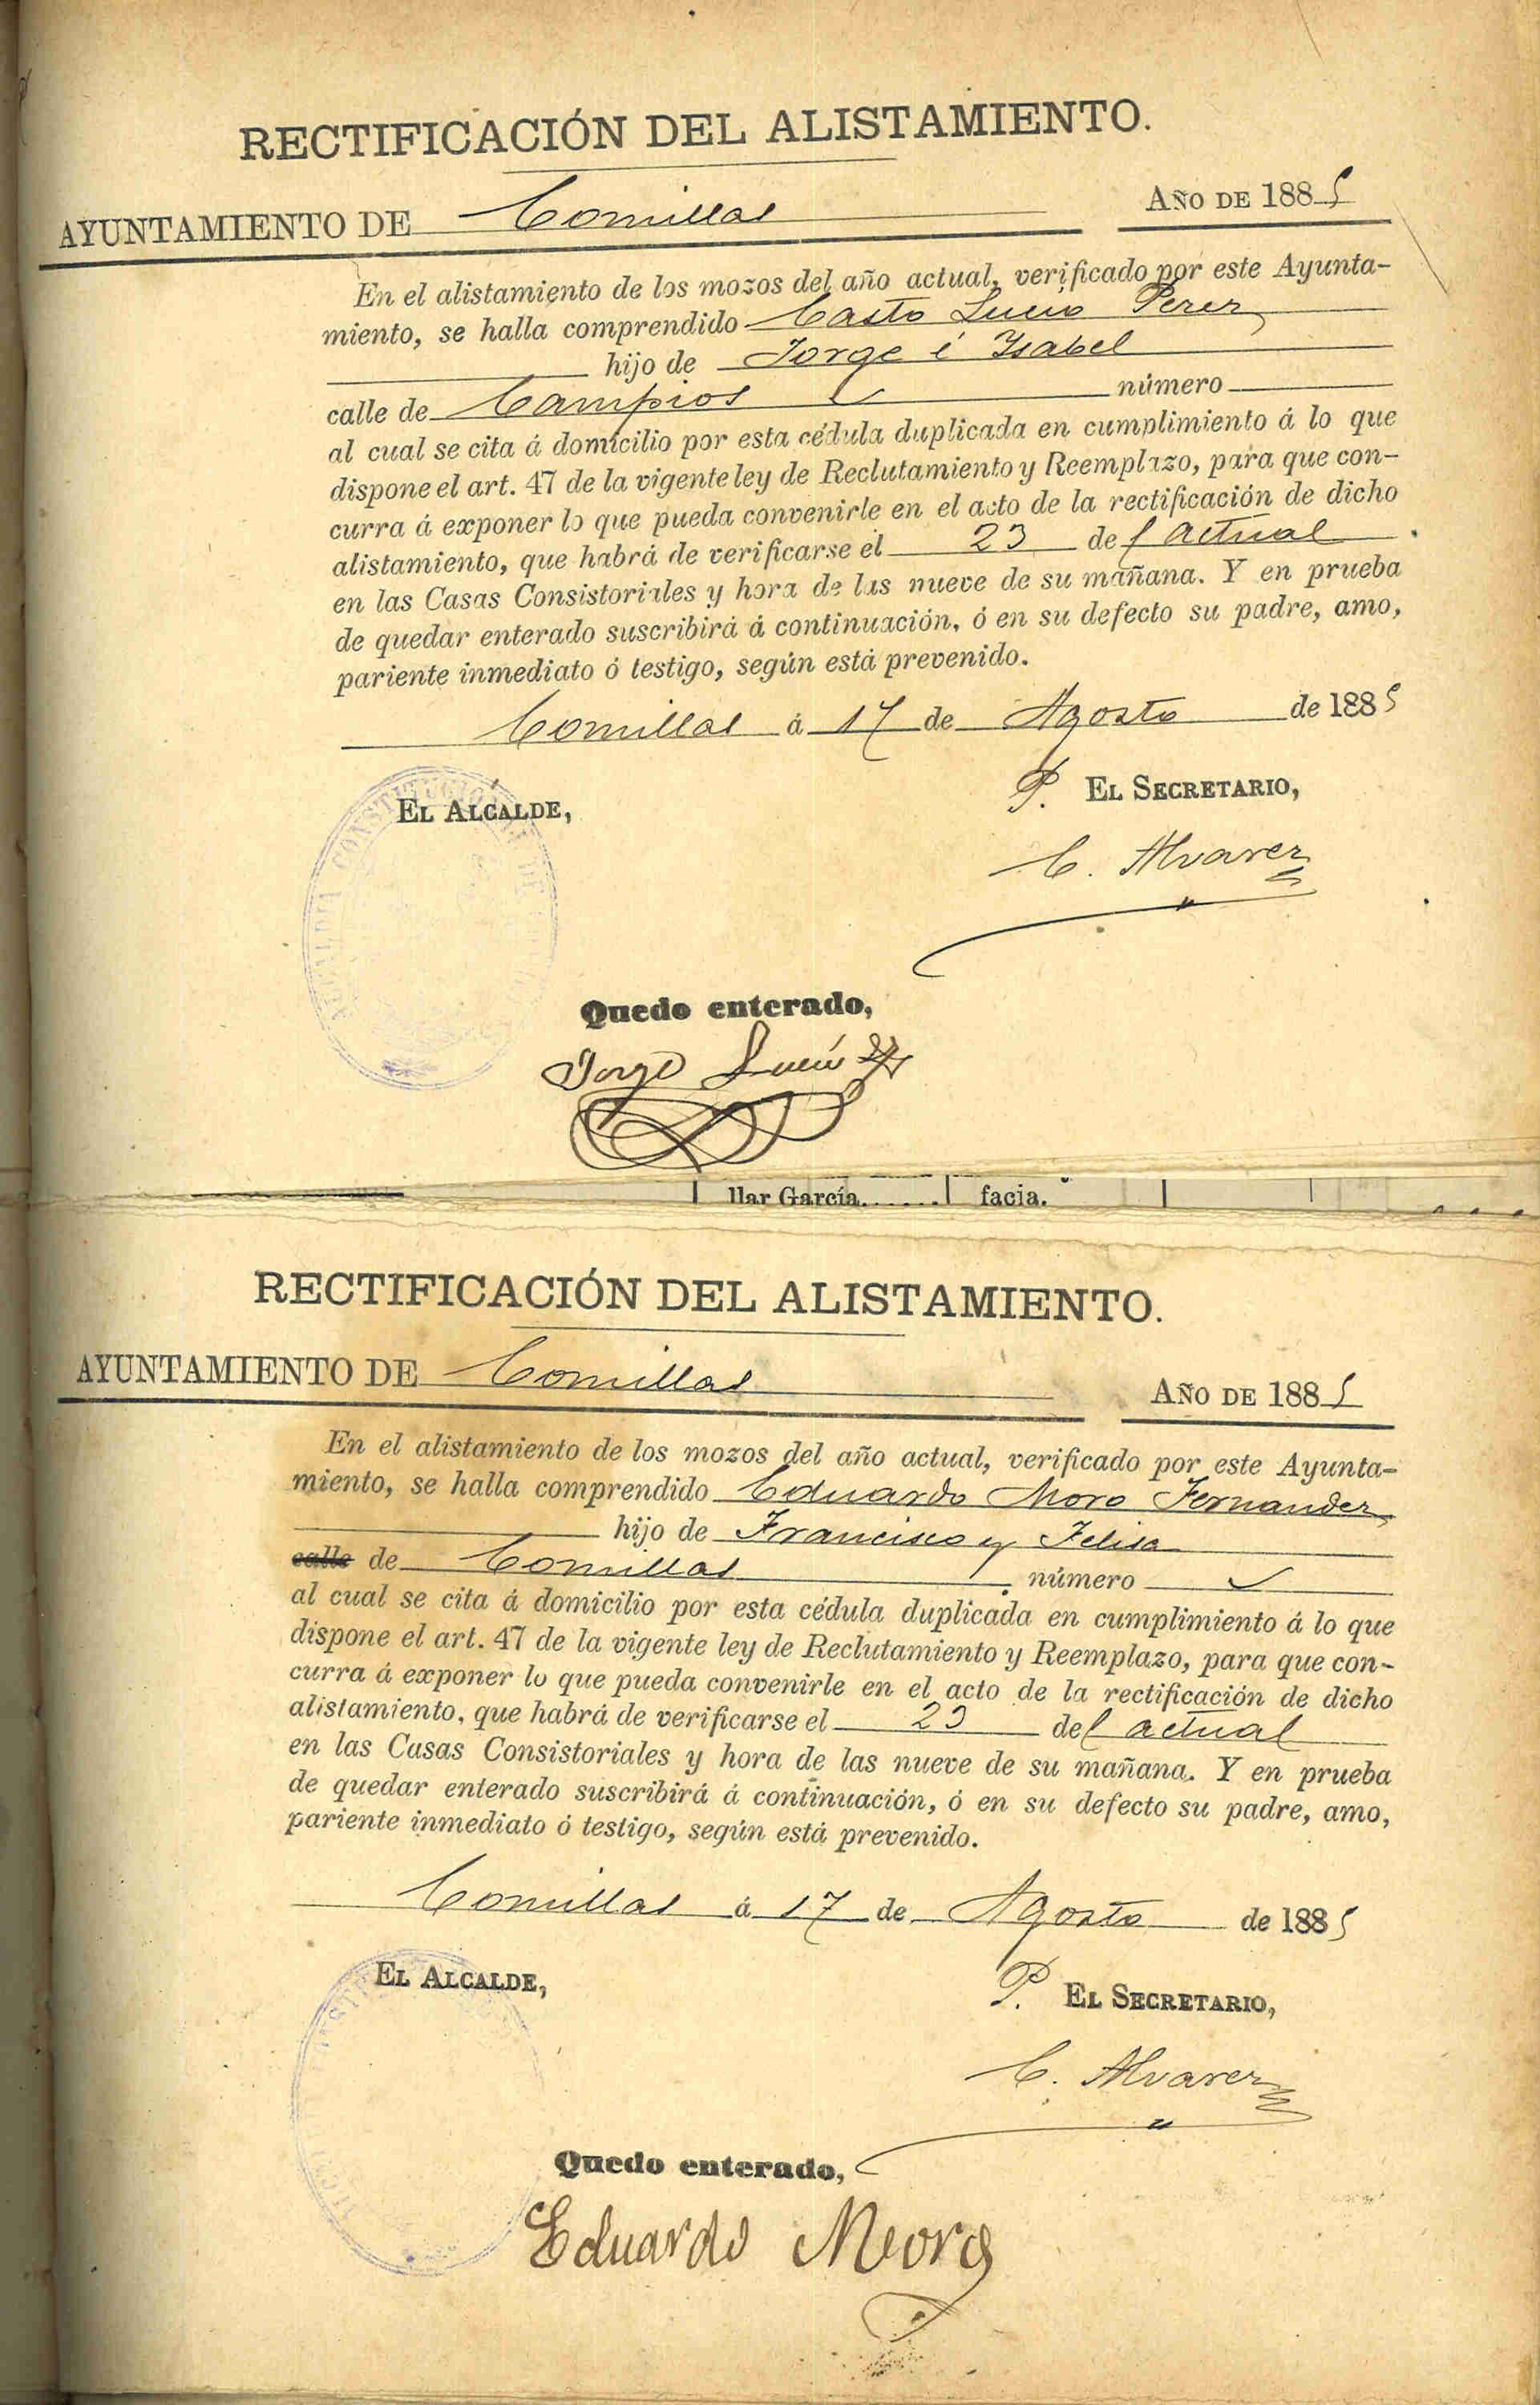 RECTIFICACIÓN DEL ALISTAMIENTO.
AYUNTAMIENTO DE Comillas AÑO DE 1885
En el alistamiento de los mozos del año actual, verificado por este Ayunta-
miento, se halla comprendido Casto Lucio Perez
hijo de Jorge é Ysabel
calle de Campios número
al cual se cita á domicilio por esta cédula duplicada en cumplimiento á lo que
dispone el art. 47 de la vigente ley de Reclutamiento y Reemplazo, para que con-
curra á exponer lo que pueda convenirle en el acto de la rectificación de dicho
alistamiento, que habrá de verificarse el 23 del actual
en las Casas Consistoriales y hora de las nueve de su mañana. Y en prueba
de quedar enterado suscribirá á continuación, ó en su defecto su padre, amo,
pariente inmediato ó testigo, según está prevenido.
Comillas á 17 de Agosto de 1885
EL ALCALDE, P. EL SECRETARIO,
C. Alvarez
Quedo enterado,
Jorge Lucio
llar García....... facia.
RECTIFICACIÓN DEL ALISTAMIENTO.
AYUNTAMIENTO DE Comillas AÑO DE 1885
En el alistamiento de los mozos del año actual, verificado por este Ayunta-
miento, se halla comprendido Eduardo Moro Fernandez
hijo de Francisco y Felisa
calle de Comillas número
al cual se cita á domicilio por esta cédula duplicada en cumplimiento á lo que
dispone el art. 47 de la vigente ley de Reclutamiento y Reemplazo, para que con-
curra á exponer lo que pueda convenirle en el acto de la rectificación de dicho
alistamiento, que habrá de verificarse el 23 del actual
en las Casas Consistoriales y hora de las nueve de su mañana. Y en prueba
de quedar enterado suscribirá á continuación, ó en su defecto su padre, amo,
pariente inmediato ó testigo, según está prevenido.
Comillas á 17 de Agosto de 1885
EL ALCALDE, P. EL SECRETARIO,
C. Alvarez
Quedo enterado,
Eduardo Moro